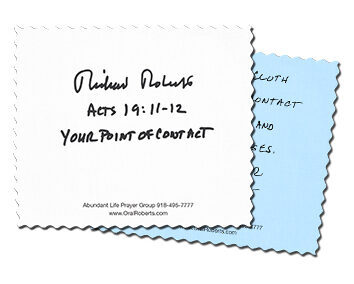 Richard Roberts
ACTS 19:11-12
YOUR POINT OF CONTACT
Abundant Life Prayer Group 918-495-7777
www.OralRoberts.com
CLOTH
CONTACT
AND
918-495-7777